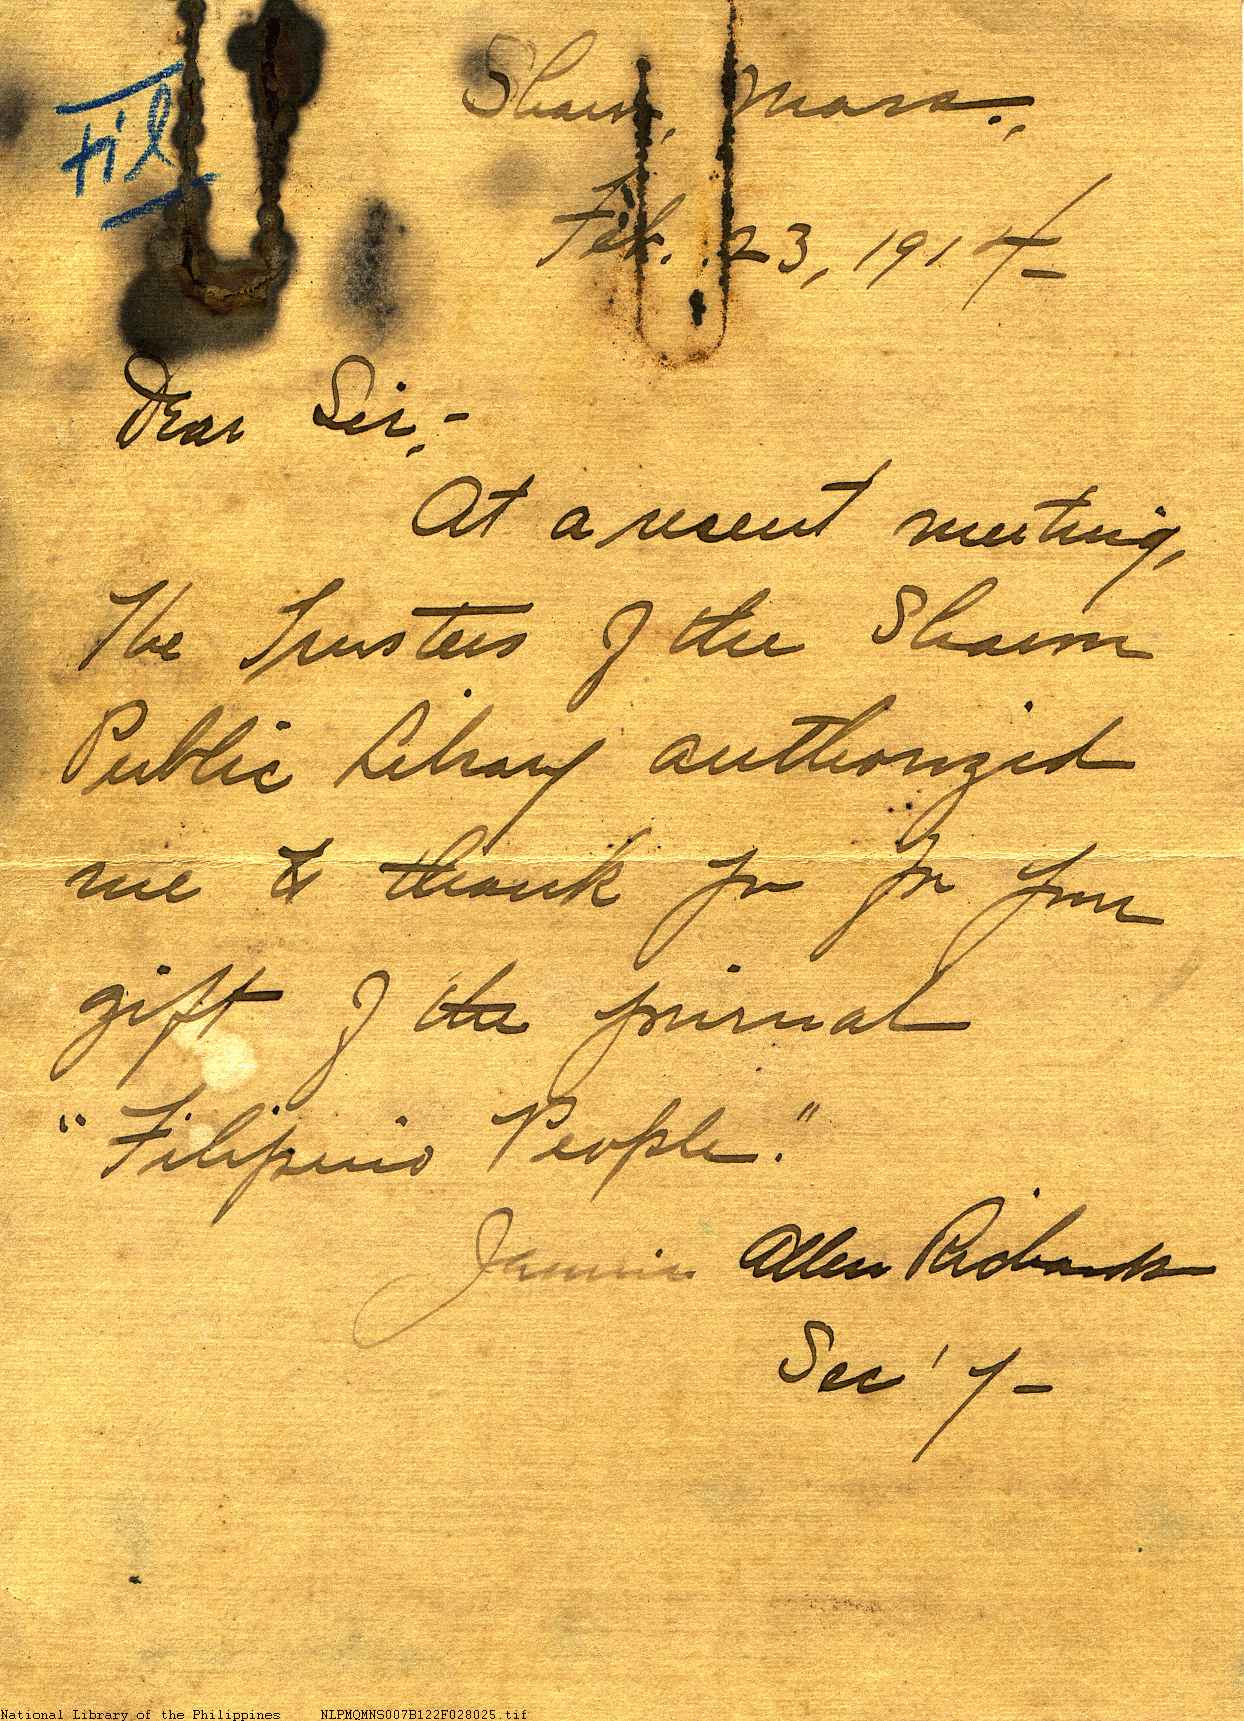 Fil
Sharon, Mass.,
Feb. 23, 1914
Dear Sir,-
At a recent meeting,
the Trustees of the Sharon
Public Library authorized
me to thank you for your
gift of the journal
"Filipino People."
Allen Richards
Sec'y-
National Library of the Philippines NLPMQMNS007B122F028025.tif